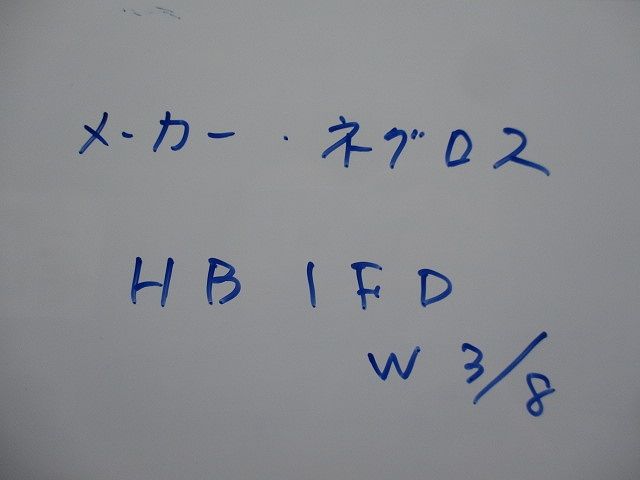 メーカー・ネグロス
HB1FD
W 3/8